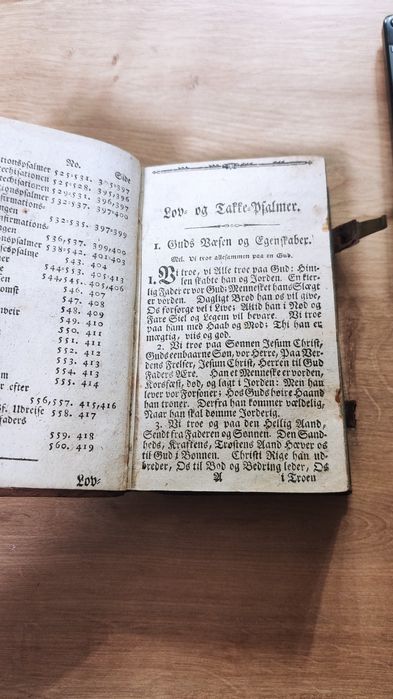 No. Side
tionspsalmer 525-531. 395-397
techisationen 525-528. 395, 396
techisationen 529-531. 396, 397
tionspsalmer 532-537. 397-400
firmations-
ngen 532-535. 397-399
nfirmations-
ngen 536, 537. 399, 400
onspsalmer 538-542. 401-403
epsalme 543. 403, 404
er 544-553. 404-413
sen 544, 545. 405, 406
omst 546. 407
547. 408
nveir 548. 409
549. 410
550. 411
551. 411
552. 412
553. 413
554. 413
555. 414
r efter
556, 557. 415, 416
Udreise 558. 417
faders
559. 418
560. 419
Lov-
Lov- og Takke-Psalmer.
1. Guds Væsen og Egenskaber.
Mel. Vi troe allesammen paa en Gud.
1. Vi troe, vi Alle troe paa Gud: Him-
len skabte han og Jorden. En kier-
lig Fader er vor Gud; Mennesket hans Slægt
er vorden. Dagligt Brød han os vil give,
Os forsørge vel i Live; Altid han i Nød og
Fare Siel og Legem vil bevare. Vi troe
paa ham med Haab og Mod; Thi han er
mægtig, viis og god.
2. Vi troe paa Sønnen Jesum Christ,
Guds eenbaarne Søn, vor Herre, Paa Ver-
dens Frelser, Jesum Christ, Herren til Gud
Faders Ære. Han er Menneske vorden,
Korsfæst, død, og lagt i Jorden; Men han
lever vor Forsoner; Hos Guds høire Haand
han troner. Derfra han kommer vældelig,
Naar han skal dømme Jorderig.
3. Vi troe og paa den Hellig Aand,
Sendt fra Faderen og Sønnen. Den Sand-
heds, Kraftens, Trøstens Aand Hæver os
til Gud i Bønnen. Christi Rige han ud-
breder, Os til Bod og Bedring leder, Os
A i Troen